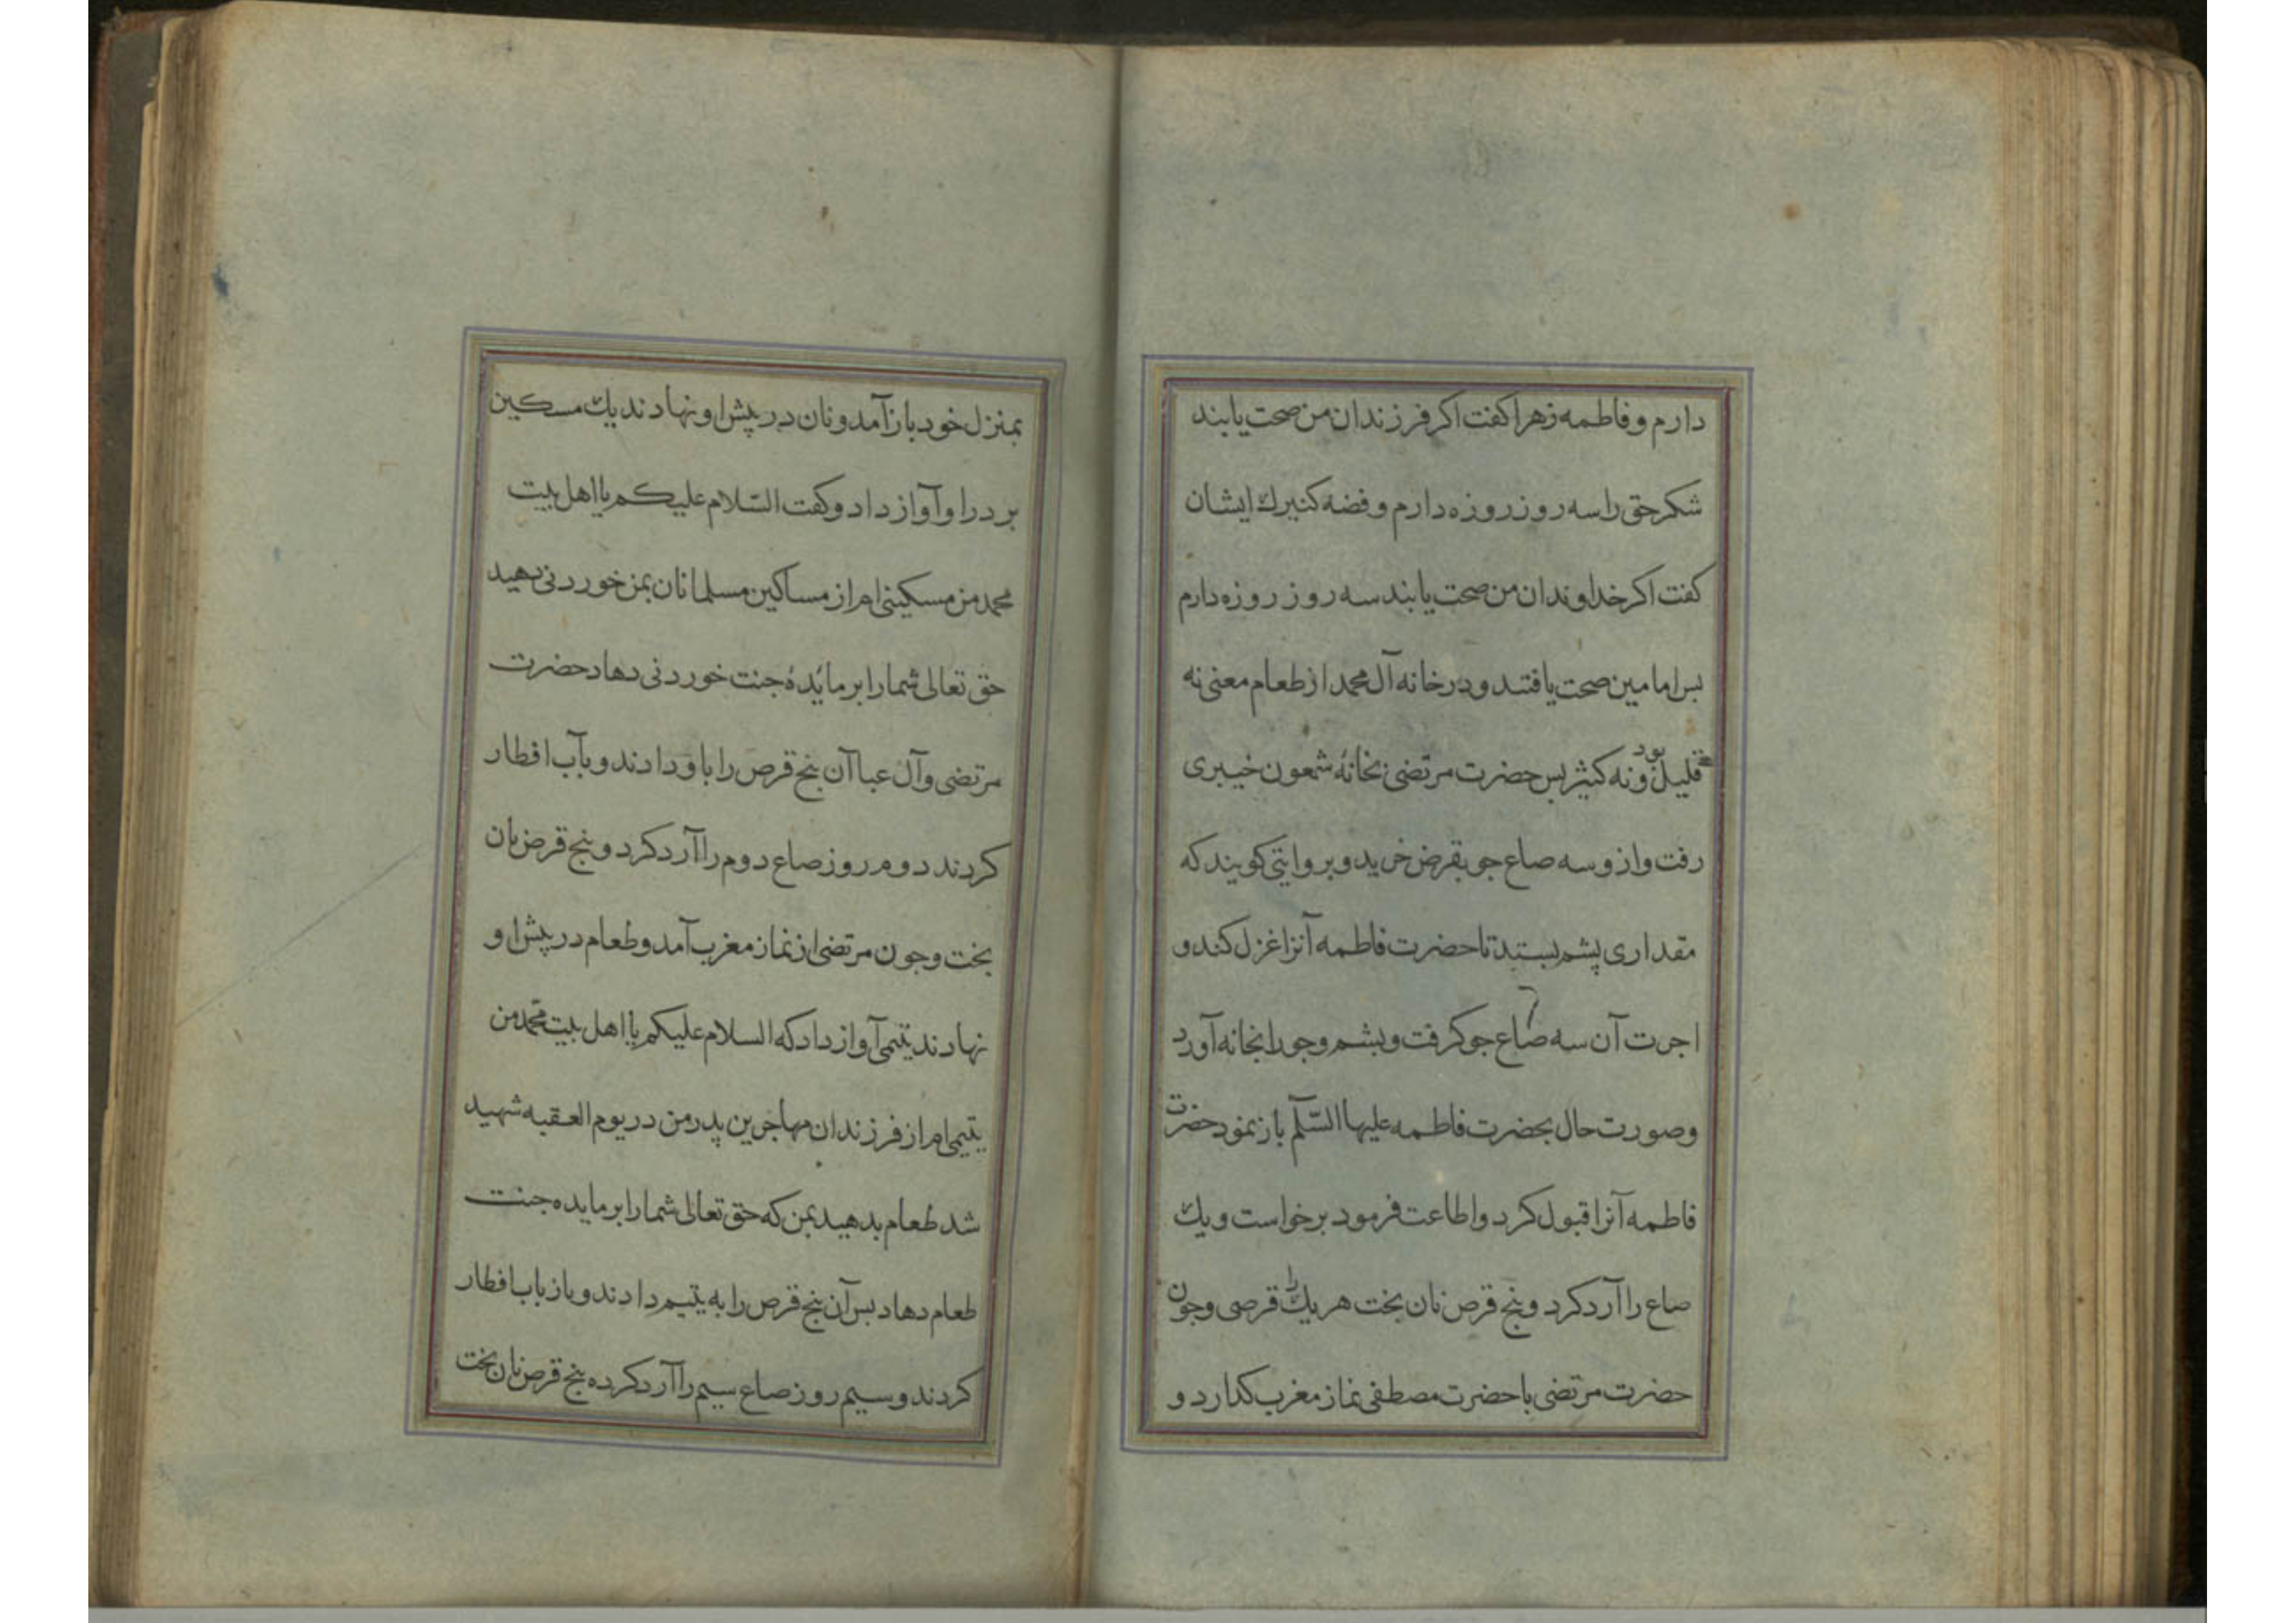 دارم و فاطمه زهرا کفت اکر فرزندان من صحت یابند
شکر حق را سه روز روزه دارم و فضه کنیرك ایشان
کفت اکر خداوندان من صحت یابند سه روز روزه دارم
بس امامین صحت یافتند و در خانه آل محمد از طعام معنی نه
قلیل بود و نه کثیر بس حضرت مرتضی بخانهٔ شمعون خیبری
رفت و ازو سه صاع جو بقرض خرید و بروایتی کویند که
مقداری پشم بستید تا حضرت فاطمه آنرا غزل کند و
اجرت آن سه صاع جو کرفت و بشم و جو را بخانه آورد
و صورت حال بحضرت فاطمه علیها السّلٓم باز نمود حضرت
فاطمه آنرا قبول کرد و اطاعت فرمود برخواست و یك
صاع را آرد کرد و بنج قرص نان بخت هر یك را قرصی و جون
حضرت مرتضی با حضرت مصطفی نماز مغرب کدارد و
بمنزل خود باز آمد و نان در پیش او نهادند یك مسکین
بر در او آواز داد و کفت السّلام علیکم یا اهل بیت
محمد من مسکینی ام از مساکین مسلمانان بمن خوردنی بدهید
حق تعالی شما را بر مائدهٔ جنت خوردنی دهاد حضرت
مرتضی و آل عبا آن بنج قرص را باو دادند و بآب افطار
کردند دوم روز صاع دوم را آرد کرد و بنج قرص نان
بخت و جون مرتضی از نماز مغرب آمد و طعام در پیش او
نهادند یتیمی آواز داد که السلام علیکم یا اهل بیت محمد من
یتیمی ام از فرزندان مهاجرین پدر من در یوم العقبه شهید
شد طعام بدهید بمن که حق تعالی شما را بر مایده جنت
طعام دهاد بس آن بنج قرص را به یتیم دادند و باز باب افطار
کردند و سیم روز صاع سیم را آرد کرده بنج قرص نان بخت